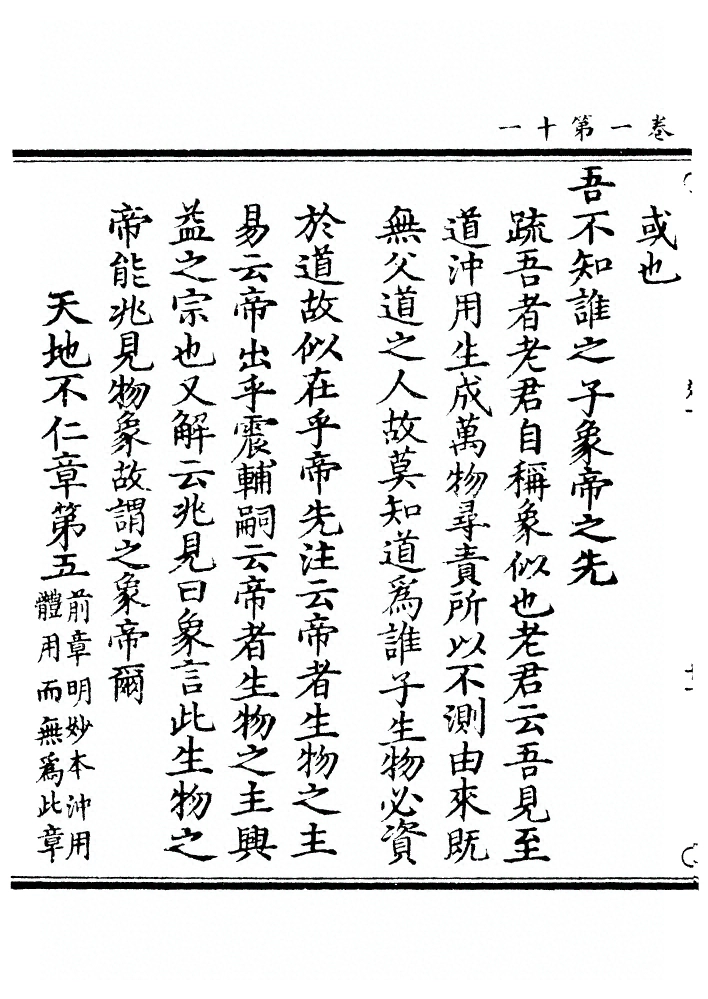 卷一第十一
或也
吾不知誰之子象帝之先
疏吾者老君自稱象似也老君云吾見至
道沖用生成萬物尋責所以不測由來既
無父道之人故莫知道爲誰子生物必資
於道故似在乎帝先注云帝者生物之主
易云帝出乎震輔嗣云帝者生物之主興
益之宗也又解云兆見曰象言此生物之
帝能兆見物象故謂之象帝爾
天地不仁章第五
前章明妙本沖用
體用而無爲此章